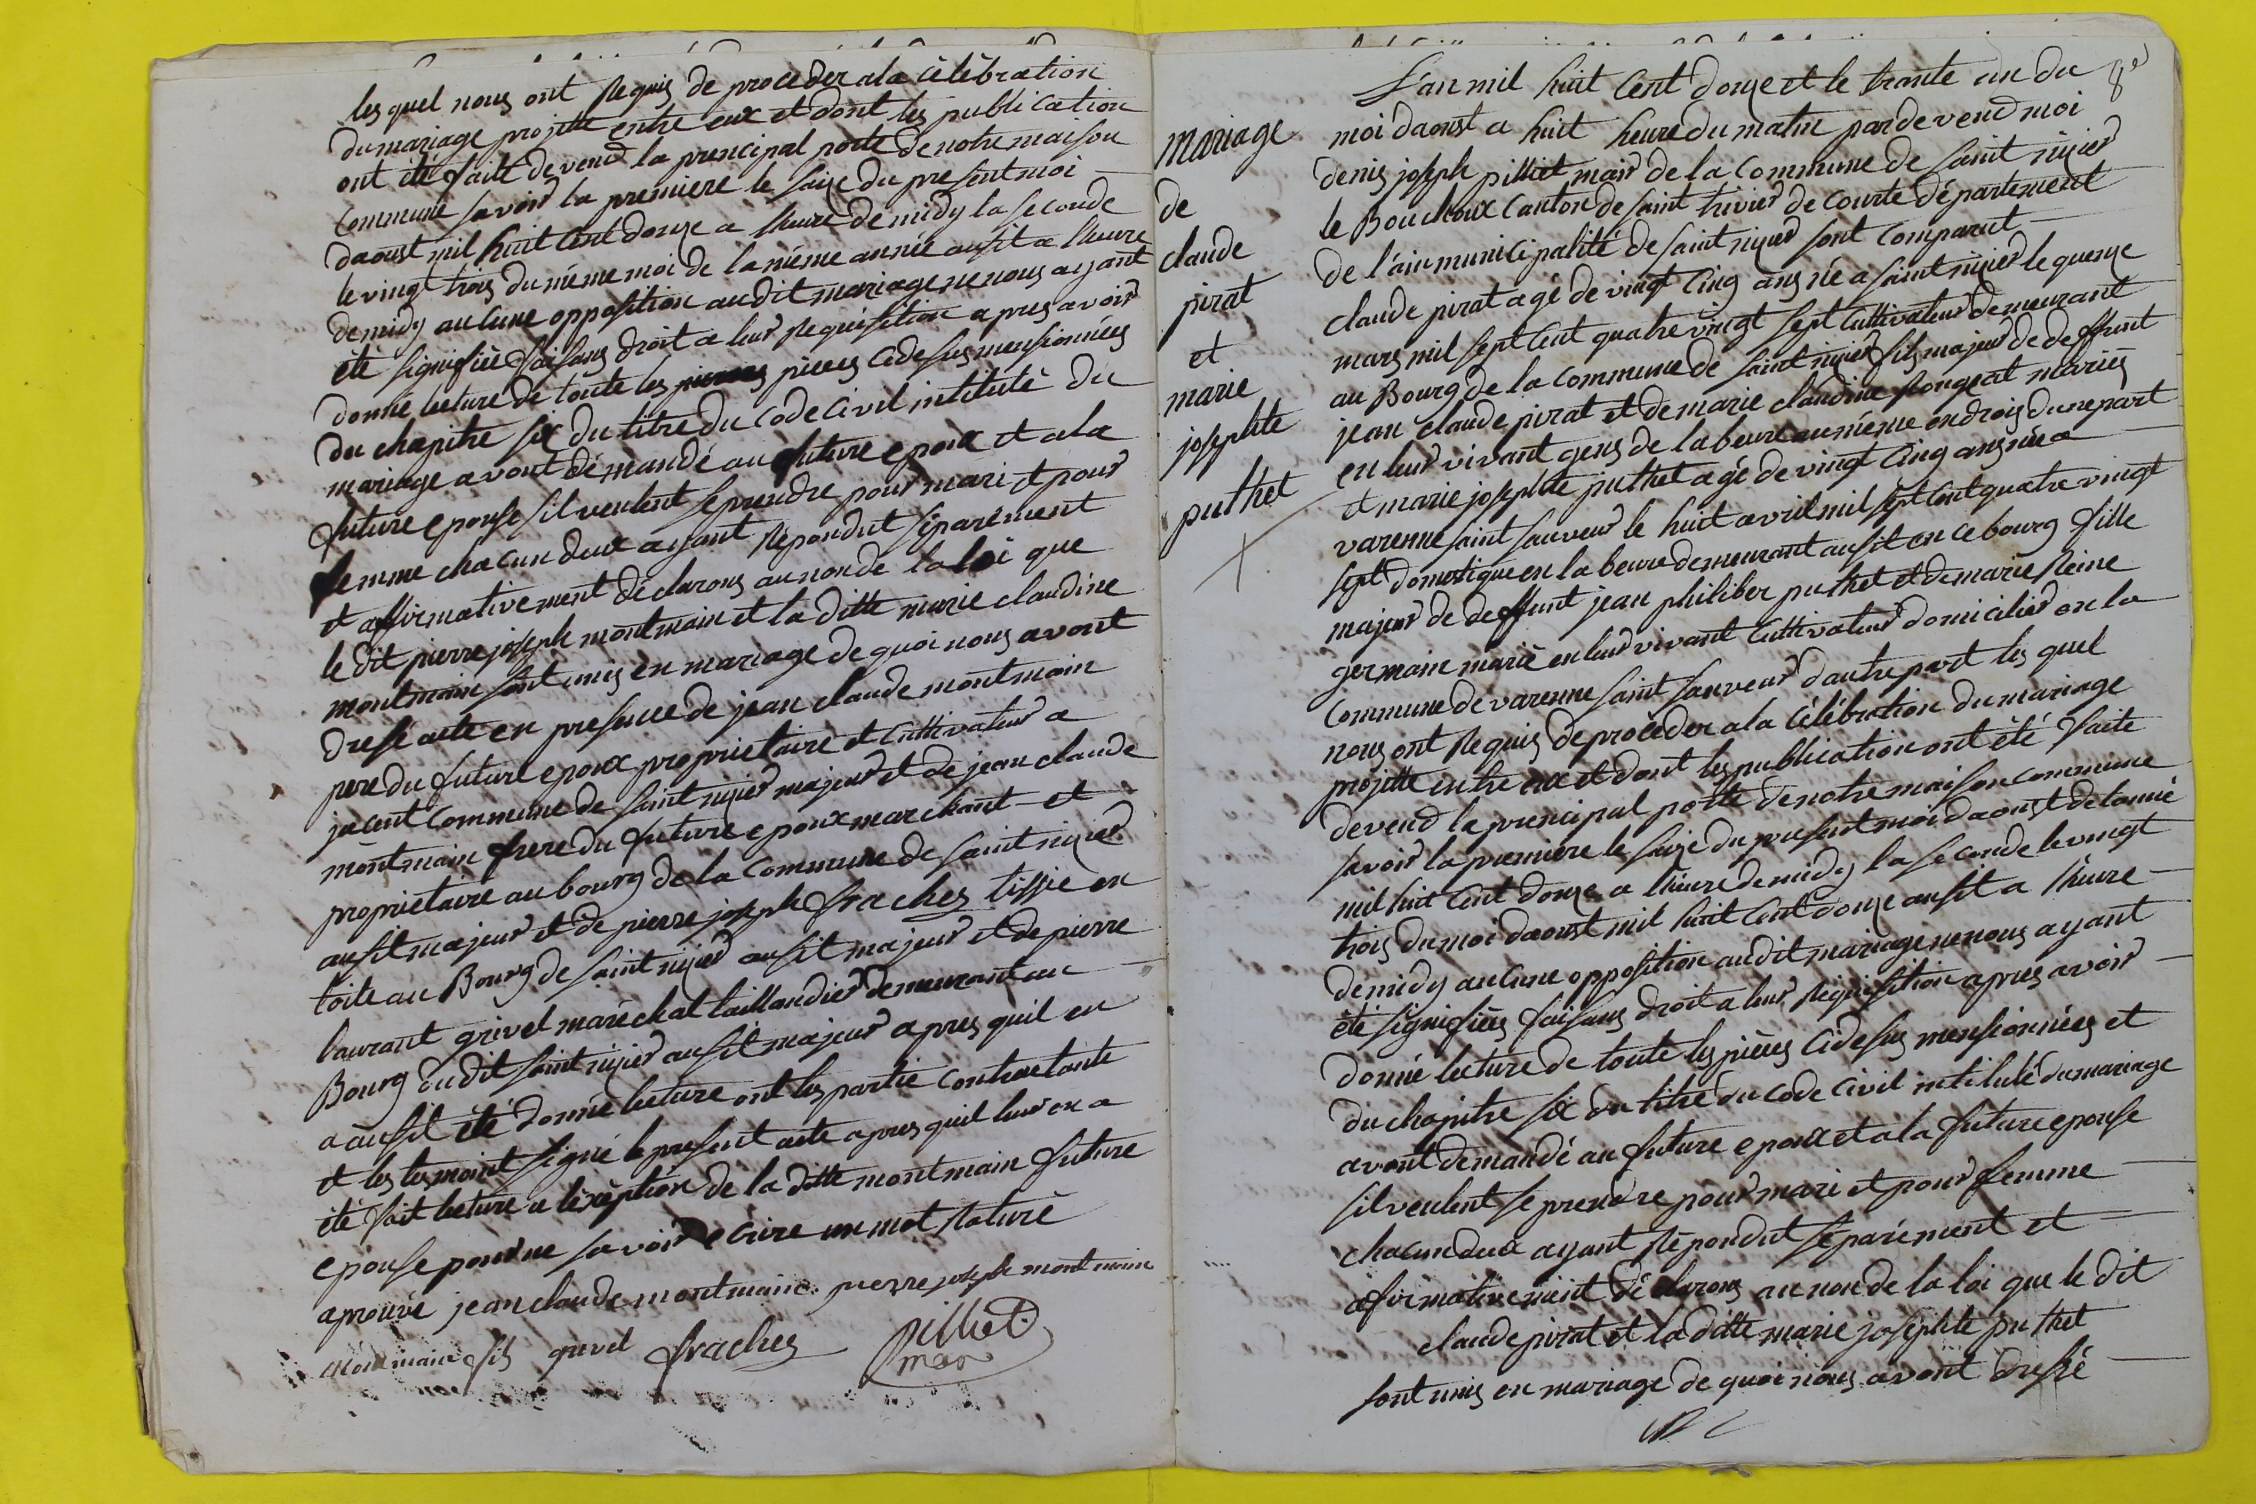 les quel nous ont Requis de proceder a la célébration
du mariage projette entre eux et dont les publication
ont été faite devend la prencipal porte de notre maison
commune savoir la premiere le saize du present moi
daoust mil huit cent douze a lheure de midy la seconde
le vingt trois du méme moi de la méme année ausit a lheure
de midy aucune opposition audit mariage ne nous ayant
été signifiée faisans droit a leur Requisition apres avoir
donné lecture de toute les pieces cidesus mensionnées
du chapitre six du titre du code civil intitulé du
mariage avont démandé au future epoux et a la
future epouse sil veulent se prendre pour mari et pour
femme chacun deux ayant Répondut séparément
et affirmativement déclarons au non de la loi que
le dit pierre joseph montmain et la ditte marie claudine
montmain sont unis en mariage de quoi nous avont
dresse acte en presence de jean claude montmain
pere du future epoux proprietaire et cultivateur a
jacent commune de saint nizier majeur et de jean claude
montmain frere du future epoux marchant et
proprietaire au bourg de la commune de saint nizier
ausit majeur et de pierre joseph fraches tissie en
toile au Bourg de saint nizier ausit majeur et de pierre
laurant grivel maréchal taillandier demeurant au
Bourg dudit saint nizier ausit majeur apres quil en
a ausit été donné lecture ont les partie contractante
et les tesmoint signé le present acte apres quil leur en a
été fait lecture a léxeption de la ditte montmain future
epouse pour ne savoir ecrire un mot Raturé
aprouvé jean claude montmain pierre joseph montmain
montmain fils grivel fraches pilliet
mair
8e
mariage
de
claude
pirat
et
marie
josephte
puthet
L'an mil huit cent douze et le trante un du
moi daoust a huit heure du matin par devend moi
denis joseph pilliet mair de la commune de saint nizier
le Bouchoux canton de saint trivier de courte département
de l'ain municipalité de saint nizier sont comparut
claude pirat agé de vingt cinq ans né a saint nizier le quenze
mars mil sept cent quatre vingt sept cultivateur demeurant
au Bourg de la commune de saint nizier fils majeur de deffunt
jean claude pirat et de marie claudine Rongeat mariés
en leur vivant gens de labeure au méme endrois dune part
et marie josephte puthet agé de vingt cinq ans née a
varenne saint sauveur le huit avril mil sept cent quatre vingt
sept domestique en labeure demeurant ausit en ce bourg fille
majeur de deffunt jean philiber puthet et de marie Reine
germain marié en leur vivant cultivateur domicilier en la
commune de varenne saint sauveur dautre part les quel
nous ont Requis de procéder a la célébration du mariage
projette entre eux et dont les publication ont été faite
devend la prencipal porte de notre maison commune
savoir la premiére le saize du present moi daoust de lannée
mil huit cent douze a lheure de midy la seconde le vingt
trois du moi daoust mil huit cent douze ausit a lheure
de midy aucune opposition audit mariage ne nous ayant
été signifiées faisans droit a leur Requisition apres avoir
donné lecture de toute les piéces cidesus mensionnées et
du chapitre six du titre du code civil intitulé du mariage
avont demandé au future epoux et a la future epouse
sil veulent se prendre pour mari et pour femme
chacun deux ayant Répondut séparément et
afirmativement déclarons au non de la loi que le dit
claude pirat et la ditte marie josephte puthet
sont unis en mariage de quoi nous avont dressé